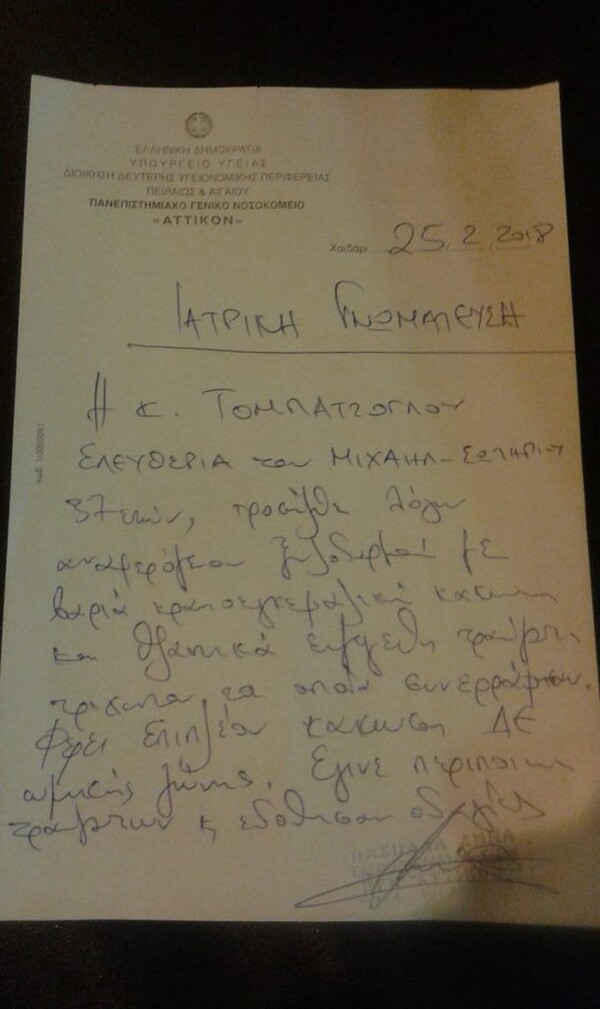 ΕΛΛΗΝΙΚΗ ΔΗΜΟΚΡΑΤΙΑ
ΥΠΟΥΡΓΕΙΟ ΥΓΕΙΑΣ
ΔΙΟΙΚΗΣΗ ΔΕΥΤΕΡΗΣ ΥΓΕΙΟΝΟΜΙΚΗΣ ΠΕΡΙΦΕΡΕΙΑΣ
ΠΕΙΡΑΙΩΣ & ΑΙΓΑΙΟΥ
ΠΑΝΕΠΙΣΤΗΜΙΑΚΟ ΓΕΝΙΚΟ ΝΟΣΟΚΟΜΕΙΟ
«ΑΤΤΙΚΟΝ»
Χαϊδάρι 25.2.2018
ΙΑΤΡΙΚΗ ΓΝΩΜΑΤΕΥΣΗ
Η κ. ΤΟΜΠΑΤΖΟΓΛΟΥ
ΕΛΕΥΘΕΡΙΑ του ΜΙΧΑΗΛ-ΣΩΤΗΡΙΟΥ
37 ετών, προσήλθε λόγω
αναφερόμενου ξυλοδαρμού με
βαριά κρανιοεγκεφαλική κάκωση
και θλαστικά τραύματα
τριχωτού τα οποία συνερράφησαν.
Φέρει επιπλέον κάκωση ΔΕ
ωμικής ζώνης. Έγινε περιποίηση
τραυμάτων κ εδόθησαν οδηγίες